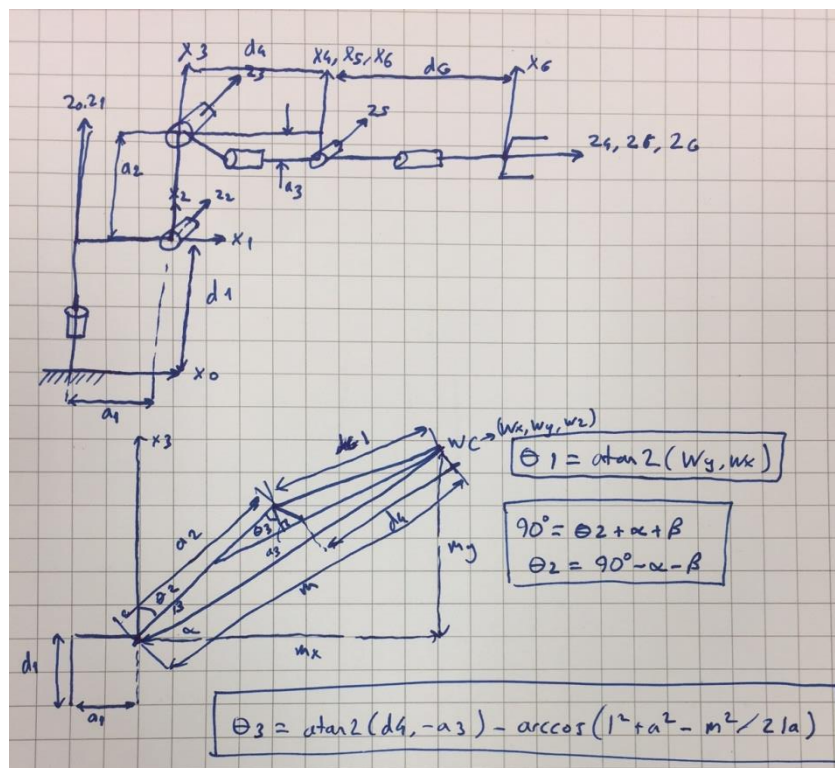 X3 d4 X4, X5, X6 X6
d6
z3
z0, z1 z5
z4, z5, z6
a2 a3
X2 z2
X1
d1
X0
a1
X3 WC → (Wx, Wy, Wz)
θ1 = atan2(Wy, Wx)
a2 θ3 d4
a3 my
90° = θ2 + α + β
θ2 = 90° - α - β
θ2 m
β
α
mx
d1
a1
θ3 = atan2(d4, -a3) - arccos(l² + a² - m² / 2la)